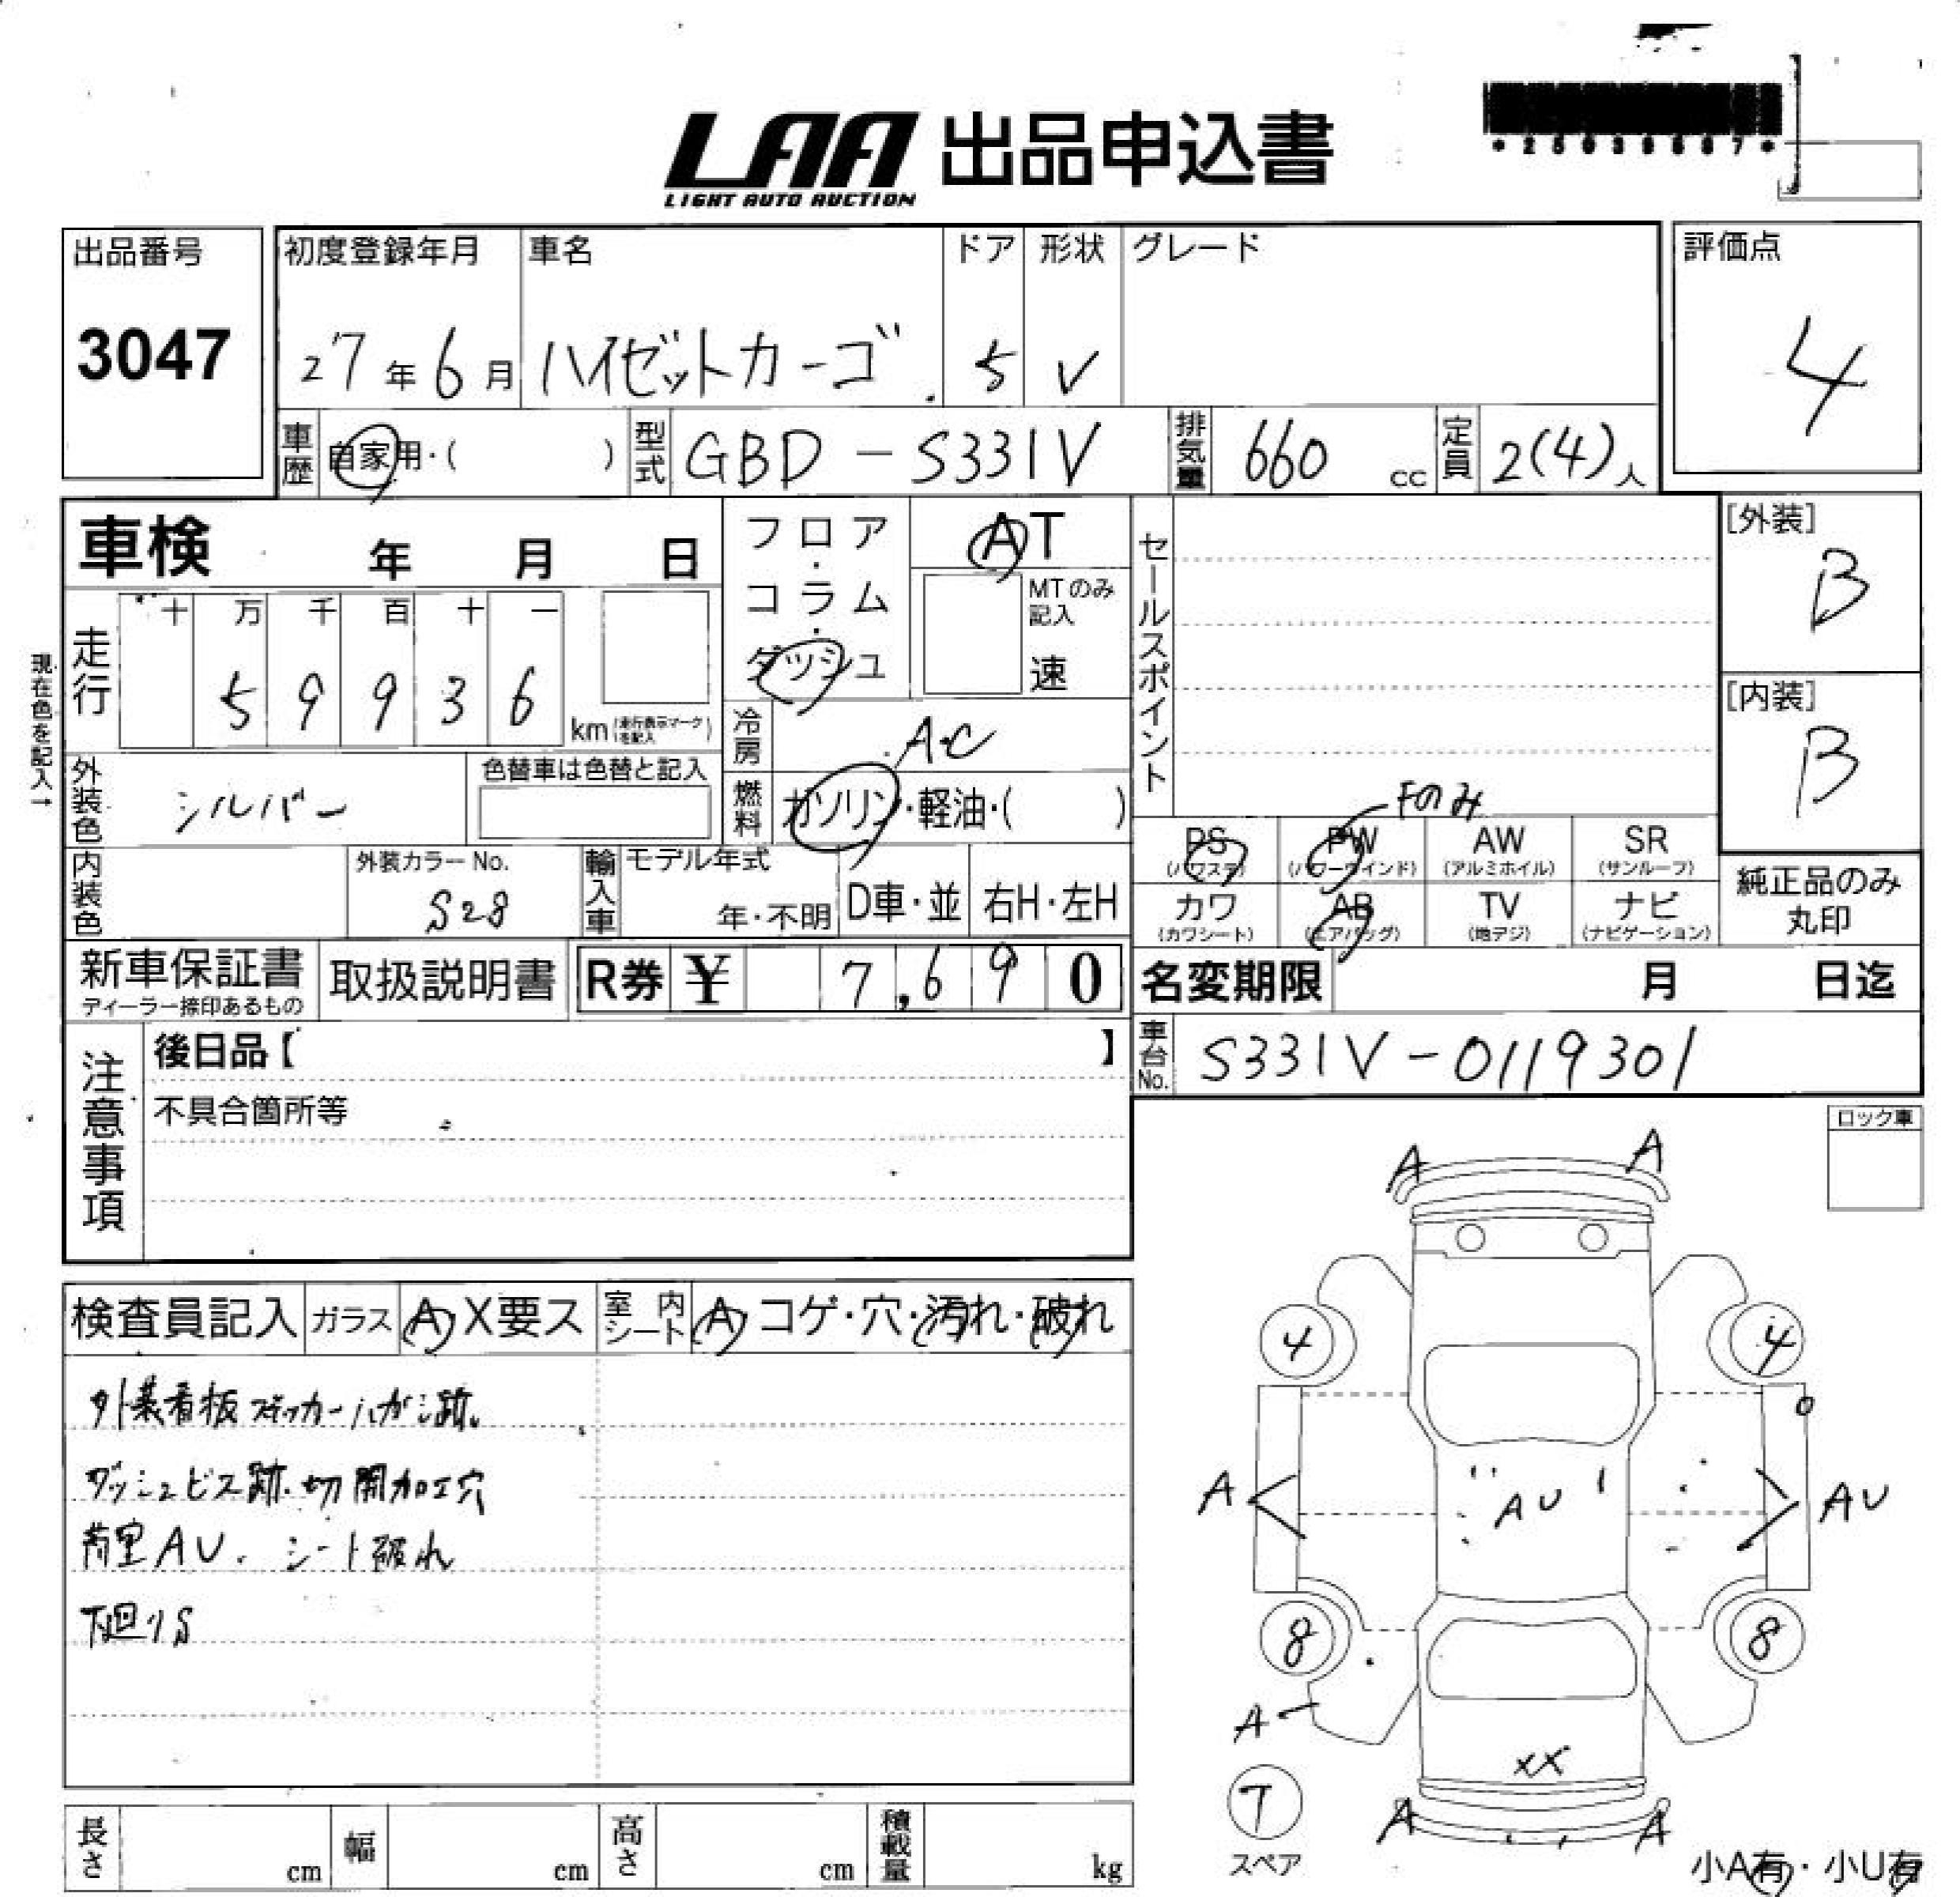 LAA 出品申込書
LIGHT AUTO AUCTION
出品番号
3047
初度登録年月
27年6月
車名
ハイゼットカーゴ
ドア
5
形状
V
グレード
評価点
4
車歴 自家用・( )
型式 GBD-S331V
排気量 660 cc
定員 2(4)人
車検 年 月 日
フロア・コラム・ダッシュ
AT
MTのみ記入
速
セールスポイント
[外装]
B
[内装]
B
現在色を記入→
走行
十 万 千 百 十 一
5 9 9 3 6
km(走行表示マークを記入)
冷房 A・C
外装色 シルバー
色替車は色替と記入
燃料 ガソリン・軽油・( )
Fのみ
PS (パワステ)
PW (パワーウインド)
AW (アルミホイル)
SR (サンルーフ)
カワ (カワシート)
AB (エアバッグ)
TV (地デジ)
ナビ (ナビゲーション)
純正品のみ
丸印
内装色
外装カラーNo.
S28
輸入車
モデル年式
年・不明
D車・並
右H・左H
新車保証書
ディーラー捺印あるもの
取扱説明書
R券 ¥ 7,690
名変期限 月 日迄
車台No. S331V-0119301
注意事項
後日品【 】
不具合箇所等
ロック車
検査員記入
ガラス A X要ス
室内シート A・コゲ・穴・汚れ・破れ
外装看板ステッカーハガシ跡
ダッシュビス跡・切開加工穴
荷室AU. シート破れ
下廻りS
A A
4 4
A AU AU
8 8
A
XX
7
スペア
A A
小A有・小U有
長さ cm
幅 cm
高さ cm
積載量 kg